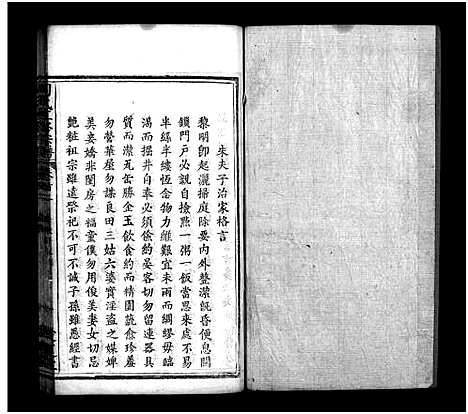 朱夫子治家格言
黎明即起灑掃庭除要內外整潔既昏便息關
鎖門戶必親自檢點一粥一飯當思來處不易
半絲半縷恆念物力維艱宜未雨而綢繆毋臨
渴而掘井自奉必須儉約晏客切勿留連器具
質而潔瓦缶勝金玉飲食約而精園蔬愈珍羞
勿營華屋勿謀良田三姑六婆實淫盜之媒婢
美妾嬌非閨房之福童僕勿用俊美妻女切忌
艷粧祖宗雖遠祭祀不可不誠子孫雖愚經書